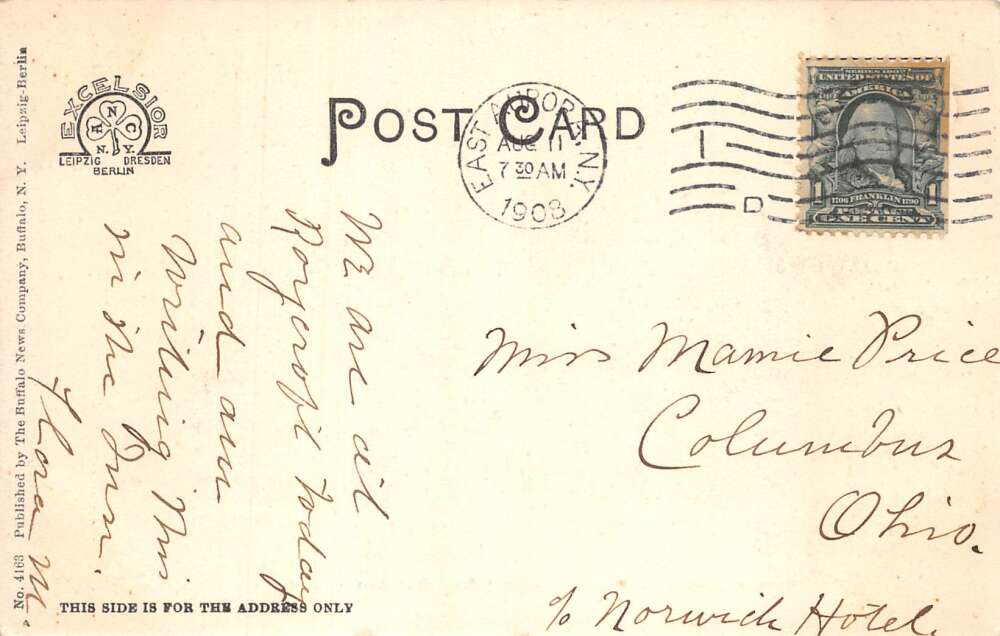 POST CARD
EXCELSIOR
N
N C
N.Y.
LEIPZIG DRESDEN
BERLIN
EAST AURORA, N.Y.
AUG 11
7 30 AM
1908
D
SERIES 1902
UNITED STATES OF
AMERICA
1 1
1706 FRANKLIN 1790
POSTAGE
ONE CENT
We are at
Roycroft today
and am
writing this
in the Inn.
Flora M
Miss Mamie Price
Columbus
Ohio.
c/o Norwich Hotel.
THIS SIDE IS FOR THE ADDRESS ONLY
No. 4163 Published by The Buffalo News Company, Buffalo, N. Y. Leipzig-Berlin